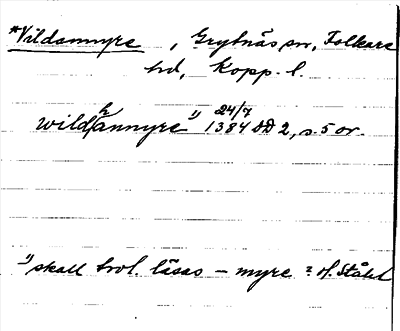 *Vildamyre, Grytnäs sn, Folkare
hd, Kopp. l.
wildhannyre¹⁾ 24/7 1384 DD 2, s. 5 or.
¹⁾ skall trol. läsas - myre? H. Ståhl